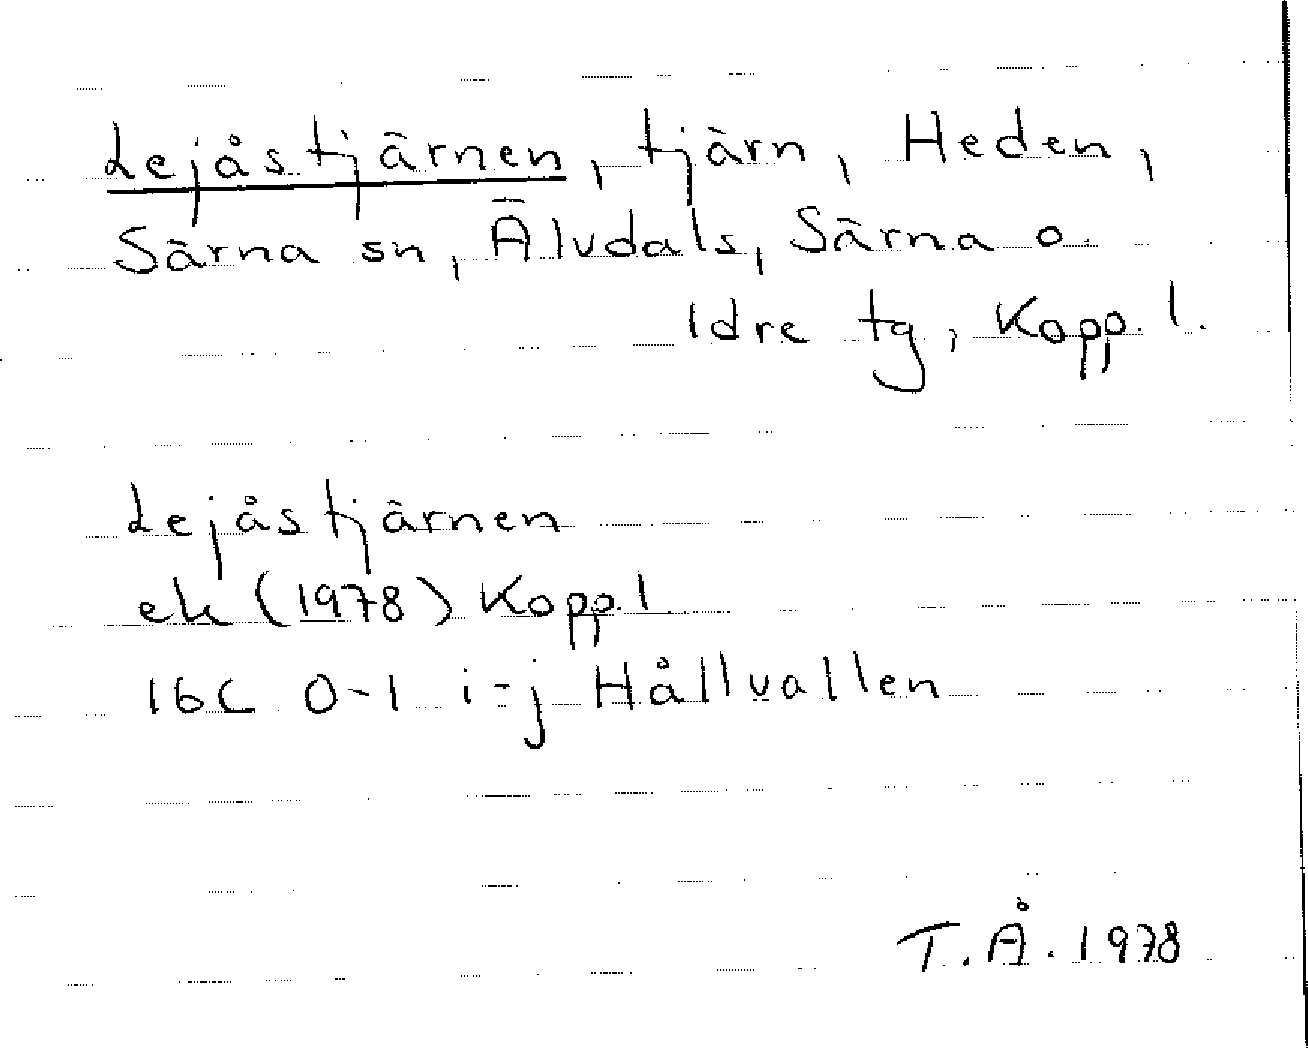 Lejåstjärnen, tjärn, Heden,
Särna sn, Älvdals, Särna o.
Idre tg, Kopp. l.
Lejåstjärnen
ek (1978) Kopp. l
16C 0-1 i-j Hållvallen
T.Å. 1978